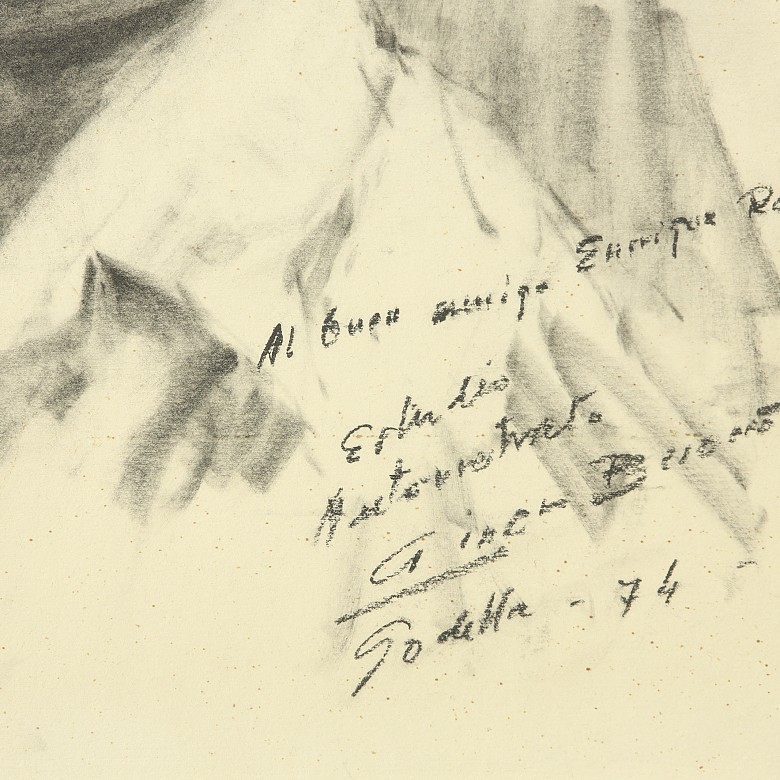 Al buen amigo Enrique
Estudio
Autorretrato
Godella - 74